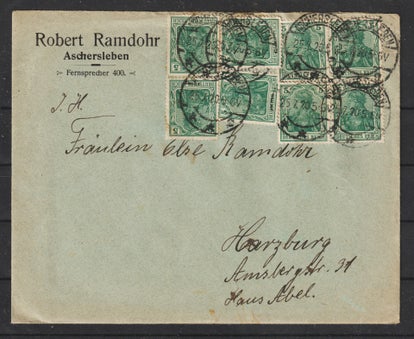 Robert Ramdohr
Aschersleben
Fernsprecher 400.
J. H.
Fräulein Else Ramdohr
Harzburg
Amsbergstr. 31
Haus Abel.